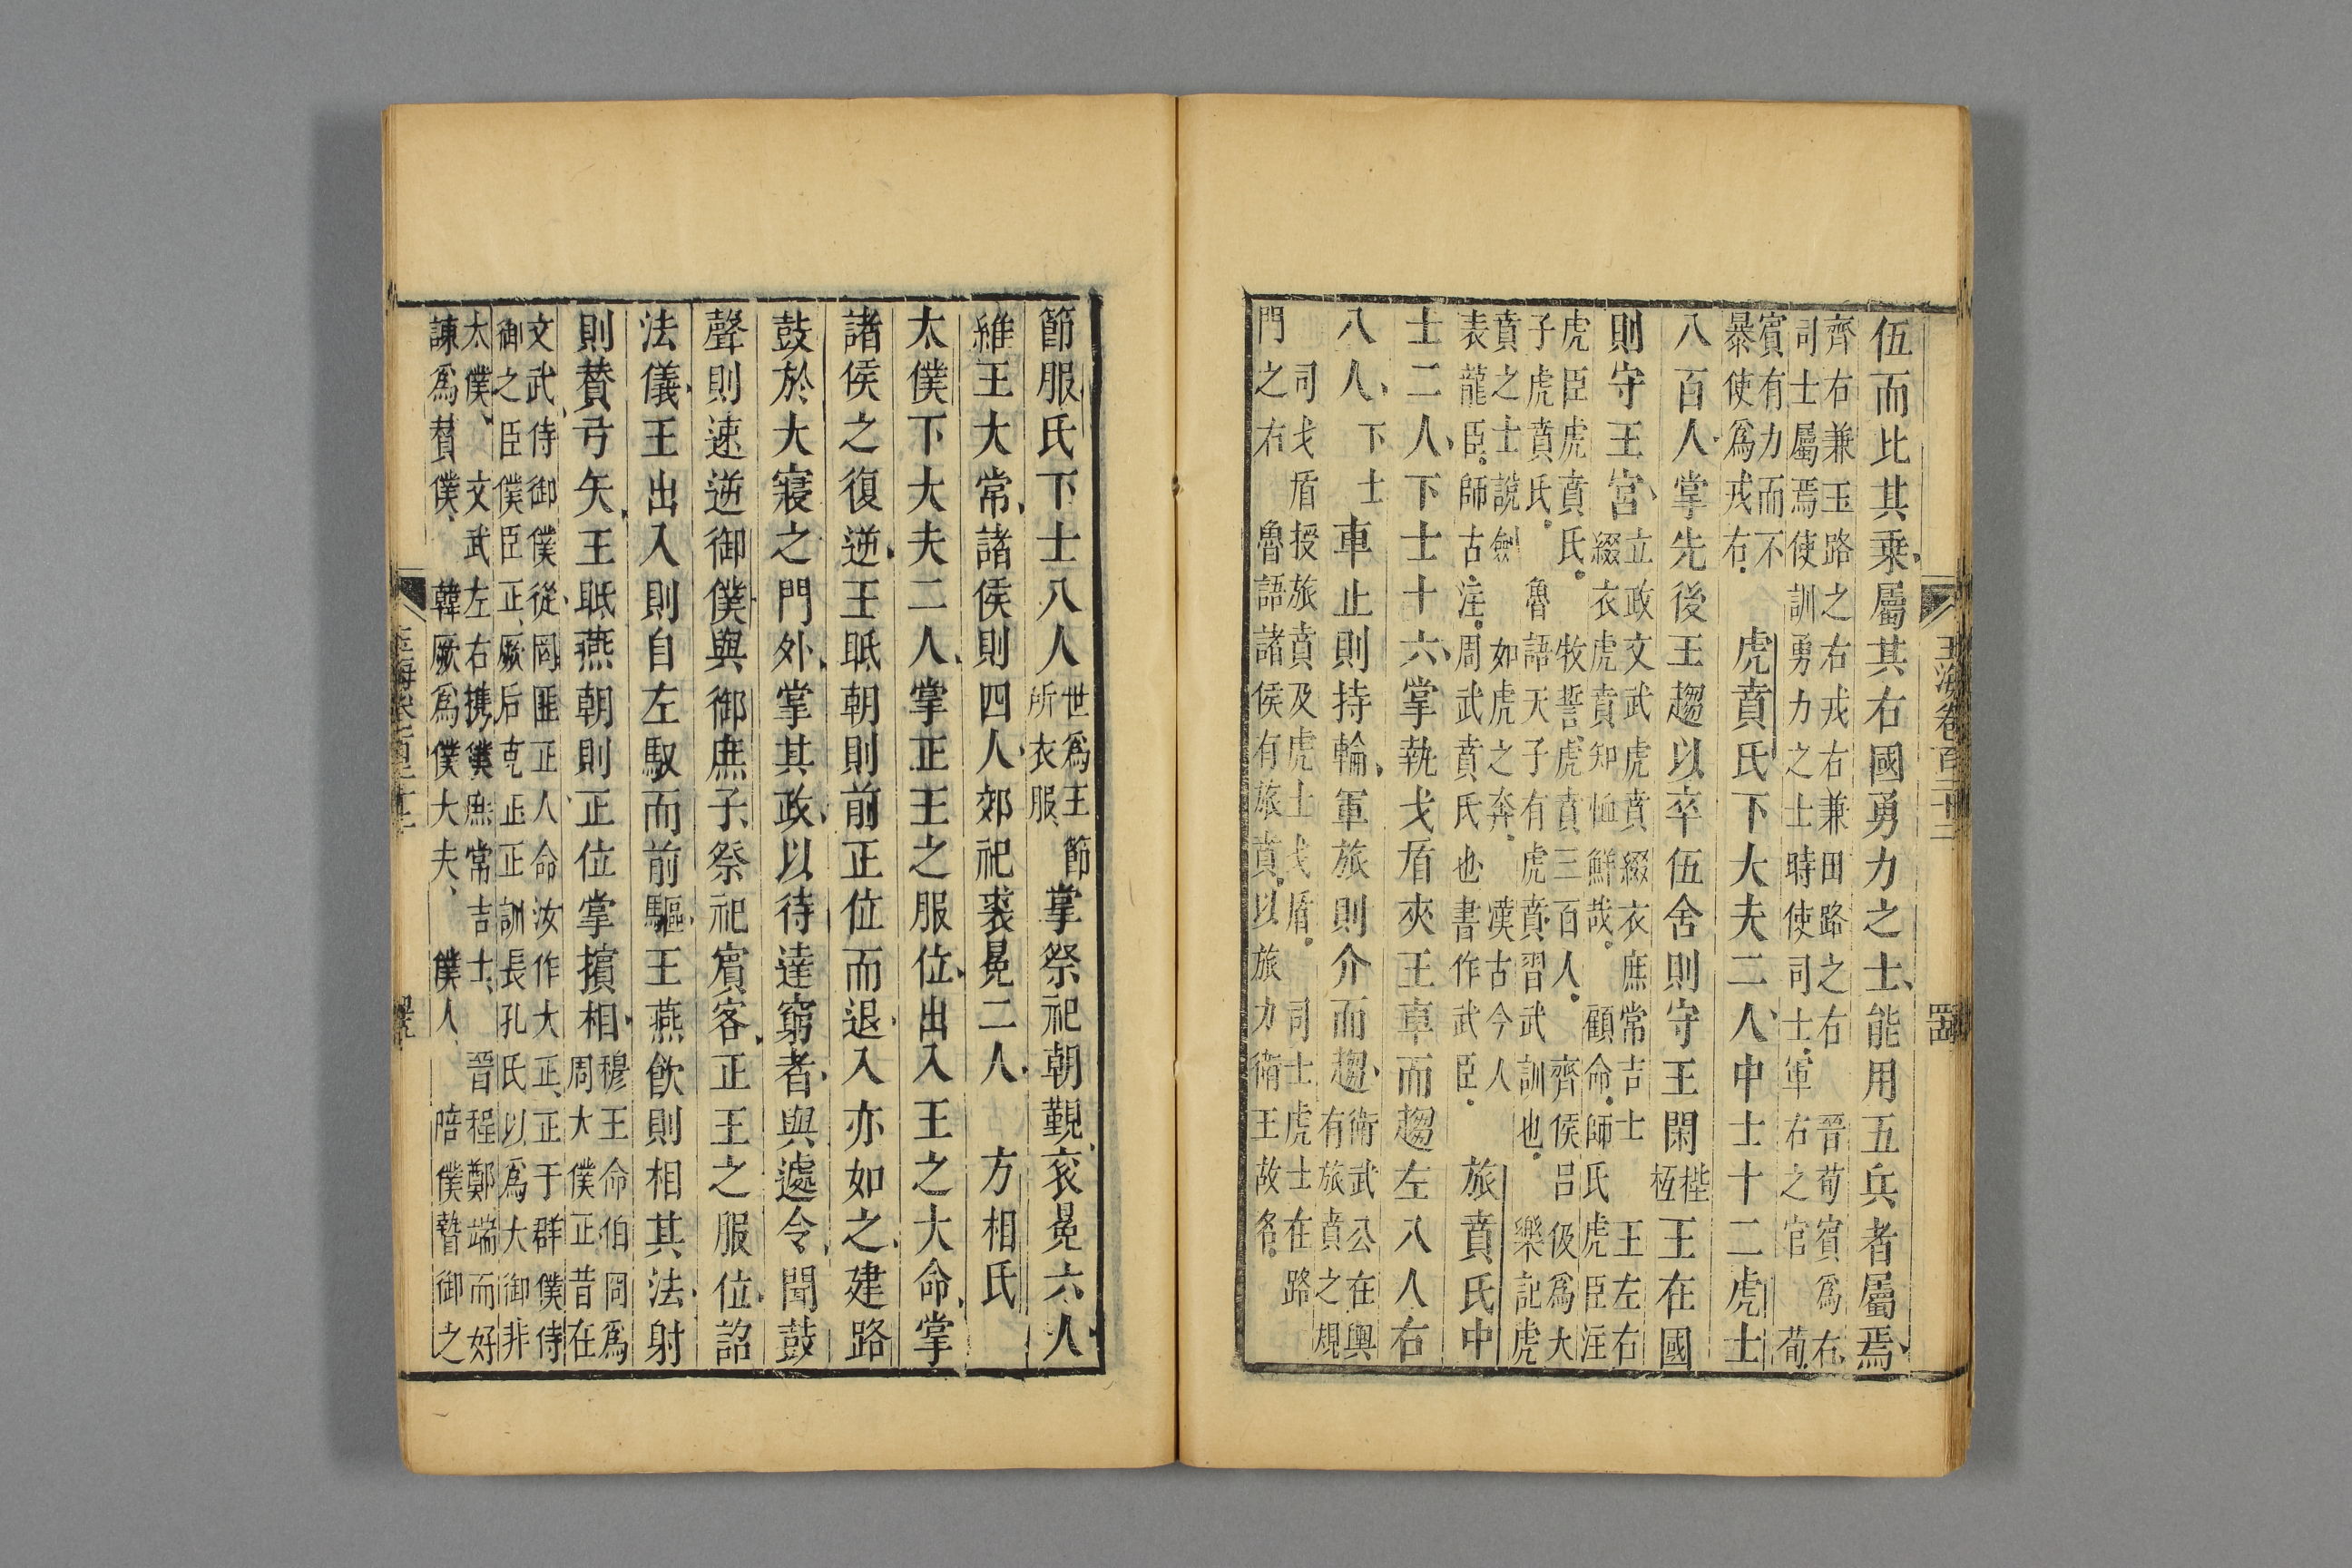 伍而比其乗屬其右國勇力之士能用五兵者屬焉
齊右兼玉路之右戎右兼田路之右　晉荀賓爲右
司士屬焉使訓勇力之士時使司士軍右之官　荀
賓有力而不
暴使爲戎右
虎賁氏下大夫二人中士十二虎士
八百人掌先後王趨以卒伍舍則守王閑
梐
枑
王在國
則守王宮
立政文武虎賁綴衣庶常吉士　王左右
綴衣虎賁知恤鮮哉　顧命師氏虎臣注
虎臣虎賁氏　牧誓虎賁三百人　齊侯呂伋爲大
子虎賁氏　魯語天子有虎賁習武訓也　樂記虎
賁之士說劍　如虎之奔　漢古今人
表龍臣師古注周武賁氏也書作武臣
旅賁氏中
士二人下士十六掌執戈盾夾王車而趨左八人右
八人
下士
車止則持輪軍旅則介而趨
衛武公在輿
有旅賁之規
司戈盾授旅賁及虎士戈盾　司士虎士在路
門之右　魯語諸侯有旅賁以旅力衛王故名
玉海卷百二十二
節服氏下士八人
世爲王節
所衣服
掌祭祀朝覲衮冕六人
維王大常諸侯則四人郊祀裘冕二人　方相氏
太僕下大夫二人掌正王之服位出入王之大命掌
諸侯之復逆王眡朝則前正位而退入亦如之建路
鼓於大寝之門外掌其政以待達窮者與遽令聞鼓
聲則速逆御僕與御庶子祭祀賓客正王之服位詔
法儀王出入則自左馭而前驅王燕飲則相其法射
則賛弓矢王眡燕朝則正位掌擯相
穆王命伯冏爲
周大僕正昔在
文武侍御僕從罔匪正人命汝作大正正于群僕侍
御之臣僕臣正厥后克正正訓長孔氏以爲大御非
太僕　文武左右携僕庶常吉士　晉程鄭端而好
諫爲賛僕　韓厥爲僕大夫　僕人　陪僕暬御之